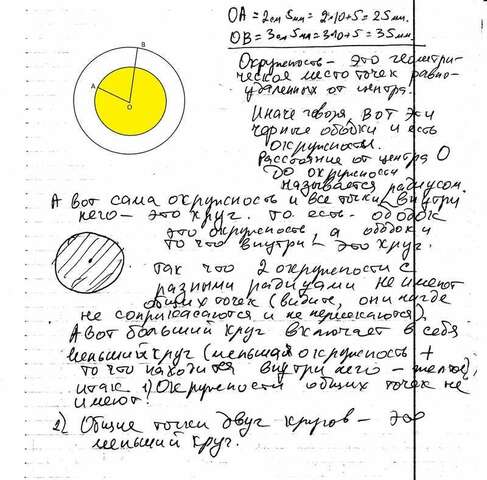 OA = 2см 5мм = 2*10+5 = 25мм.
OB = 3см 5мм = 3*10+5 = 35мм.
B
A
O
Окружность - это геометри-
ческое место точек равно-
удаленных от центра.
Иначе говоря, вот эти
черные ободки и есть
окружности.
Расстояние от центра O
до окружности
называется радиусом.
А вот сама окружность и все точки внутри
него - это круг. то есть - ободок
это окружность, а ободок и
то что внутри - это круг.
Так что 2 окружности с
разными радиусами не имеют
общих точек (видите, они нигде
не соприкасаются и не пересекаются).
А вот больший круг включает в себя
меньший круг (меньшая окружность +
то что находится внутри него - желтое),
итак 1) Окружности общих точек не
имеют!
2) Общие точки двух кругов - это
меньший круг.